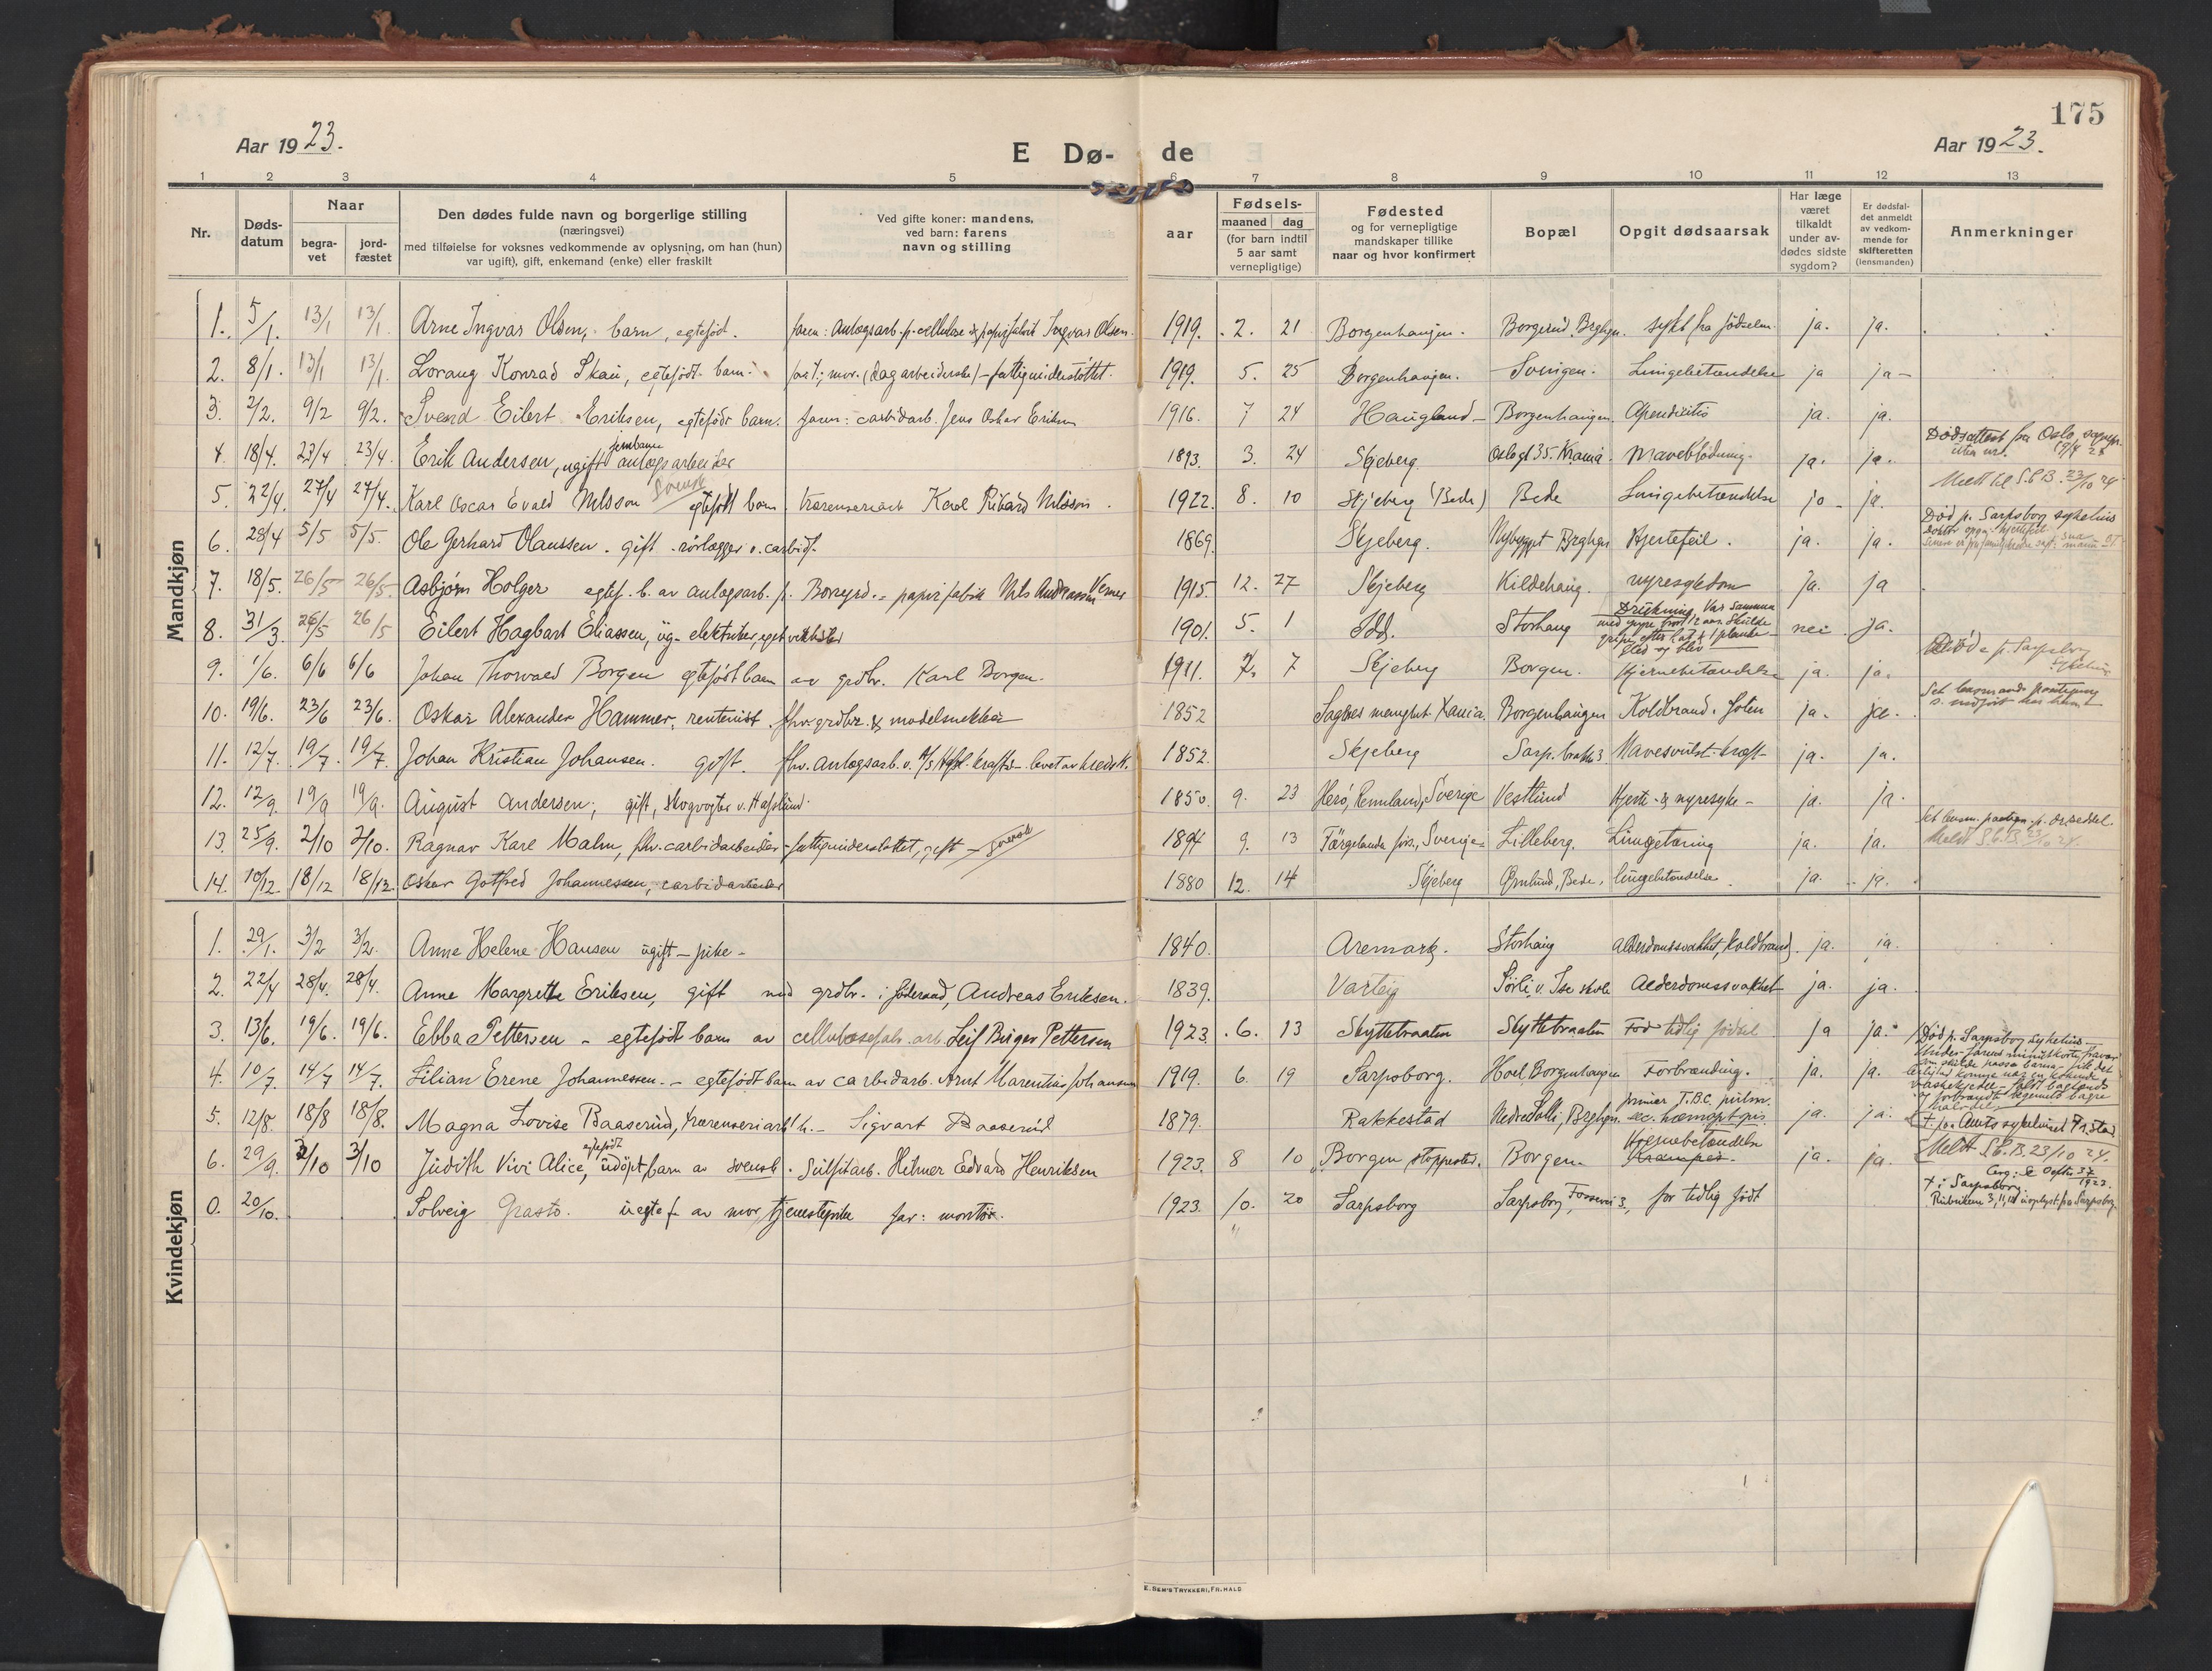 175
Aar 1923.
E Dø- de
Aar 1923.
1 2 3 4 5 6 7 8 9 10 11 12 13
Nr.
Døds-
datum
Naar
begra-
vet
jord-
fæstet
Den dødes fulde navn og borgerlige stilling
(næringsvei)
med tilføielse for voksnes vedkommende av oplysning, om han (hun)
var ugift), gift, enkemand (enke) eller fraskilt
Ved gifte koner: mandens,
ved barn: farens
navn og stilling
aar
Fødsels-
maaned dag
(for barn indtil
5 aar samt
vernepligtige)
Fødested
og for vernepligtige
mandskaper tillike
naar og hvor konfirmert
Bopæl
Opgit dødsaarsak
Har læge
været
tilkaldt
under av-
dødes sidste
sygdom?
Er dødsfal-
det anmeldt
av vedkom-
mende for
skifteretten
(lensmanden)
Anmerkninger
Mandkjøn
1. 5/1. 13/1 13/1. Arne Ingvar Olsen, barn, egtefød. faren: Anlægsarb. p. cellulose & papirfabrik Ingvar Olsen 1919. 2. 21 Borgenhaugen. Borgerud, Brghgn. sykt fra fødselen. ja. ja.
2. 8/1. 13/1 13/1. Lorang Konrad Skau, egtefødt barn. mor. (dagarbeiderske) - fattigunderstøttet. 1919. 5. 25 Borgenhaugen. Svingen. Lungebetændelse ja ja -
3. 2/2. 9/2 9/2. Svend Eilert Eriksen, egtefødt barn. faren: carbidarb. Jens Oskar Eriksen 1916. 7 24 Haugland - Borgenhaugen. Apendicitis ja. ja.
4. 18/4. 23/4 23/4. Erik Andersen, ugift jernbane anlægsarbeider 1893. 3. 24 Skjeberg. Oslogt 35. Krania. Maveblødning. ja. ja. Dødsattest fra Oslo, sogn. uten nr. 19/4 23
5. 22/4. 27/4 27/4. Karl Oscar Evald Nilsson Svensk egtefødt barn trærenseriarb Karl Rikard Nilsson. 1922. 8. 10 Skjeberg (Bede) Bede Lungebetændelse ja - ja. Meldt til S.C.B. 23/10 24
6. 28/4 5/5 5/5. Ole Gerhard Olaussen. gift - rørlægger v. carbidf. 1869. Skjeberg. Nybygget Brghgn Hjertefeil. ja. ja. Død p. Sarpsborg sykehus
7. 18/5. 26/5 26/5. Asbjørn Holger egtef. b. av anlægsarb. p. Borregrd. papirfabrik Nils Andreassen Verner 1915. 12. 27 Skjeberg Kildehaug. nyresygdom Ja. ja
8. 31/3. 26/5 26/5 Eilert Hagbart Eliassen, ug. elektriker, eget verksted 1901. 5. 1 Idd. Storhaug Drukning, Var sammen med yngre bror 12 aar. Skulde gripe efter hat & 1 planke - gled og blev nei ja.
9. 1/6. 6/6 6/6 Johan Thorvald Borgen egtefødt barn av grdbr. Karl Borgen. 1911. 7. 7 Skjeberg Borgen. Hjernebetændelse ja. ja. Døde p. Sarpsborg sykehus
10. 19/6. 23/6 23/6. Oskar Alexander Hammer, rentenist. fhv. grdbr. & modelsnekker 1852 Sagenes menighet Xania. Borgenhaugen Koldbrand. foten ja. ja.
11. 12/7. 19/7. 19/7. Johan Kristian Johansen. gift. fhv. Anlægsarb. v. A/s Hafsl. kraft - levet av kredsk. 1852. Skjeberg Sarp. brakke 3 Mavesvulst - kræft - ja. ja.
12. 12/9. 19/9 19/9. August Andersen, gift, skogvogter v. Hafslund. 1850. 9. 23 Herö, Rennland, Sverige Vestlund Hjerte- & nyresyke - ja. ja.
13. 25/9. 2/10 2/10. Ragnar Karl Malm, fhv. carbidarbeider - fattigunderstøttet, gift - svensk 1894 9. 13 Färgelanda förs., Sverige Lilleberg. Lungetæring ja. ja. Meldt S.C.B. 23/10 24.
14. 10/12. 18/12 18/12. Oskar Gotfred Johannessen, carbidarbeider 1880 12. 14 Skjeberg Ørnlund, Bede. lungebetændelse. ja. ja.
Kvindekjøn
1. 29/1. 3/2 3/2. Anne Helene Hansen ugift - pike - 1840. Aremark. Storhaug Alderdomssvakhet, koldbrand. ja. ja.
2. 22/4 28/4. 28/4. Anne Margrette Eriksen, gift med grdbr. i Andreas Eriksen. 1839. Varteig Sørli, v. Ise skole Alderdomssvakhet ja. ja.
3. 13/6. 19/6. 19/6. Ebba Pettersen - egtefødt barn av cellulosefab. arb. Leif Birger Pettersen 1923. 6. 13 Skyttebraaten Skyttebraaten For tidlig fødsel ja ja.
4. 10/7. 14/7 14/7. Lilian Erene Johannessen. - egtefødt barn av carbidarb. Arnt Marentius Johansen 1919. 6. 19 Sarpsborg. Hoel, Borgenhaugen Forbrænding. ja. ja. Død p. Sarpsborg sykehus -
5. 12/8. 18/8 18/8. Magna Lovise Baaserud, trærenseriarb. h. - Sigvart Baaserud 1879. Rakkestad Nedre Solli, Brghgn. primær T.B.C. pulm. sec. hæmoptysis. ja. ja. + paa Amtssykehuset Fr.stad
6. 29/9. 3/10 3/10 Judith Vivi Alice, egtefødt udøpt barn av svensk. Sulfitarb. Hilmer Edvard Henriksen 1923. 8 10 Borgen stoppested. Borgen. Hjernebetændelse Kramper. ja. ja. Meldt S.C.B. 23/10 24.
0. 20/10. Solveig Grastø. uegtef. av mor, tjenestepike far: montør. 1923. 10. 20 Sarpsborg Sarpsborg, Fossevei 3, for tidlig født + i Sarpsborg. Rubrikene 3, 11, 12 uoplyst fra Sarpsborg
E. SEM'S TRYKKERI, FR.HALD